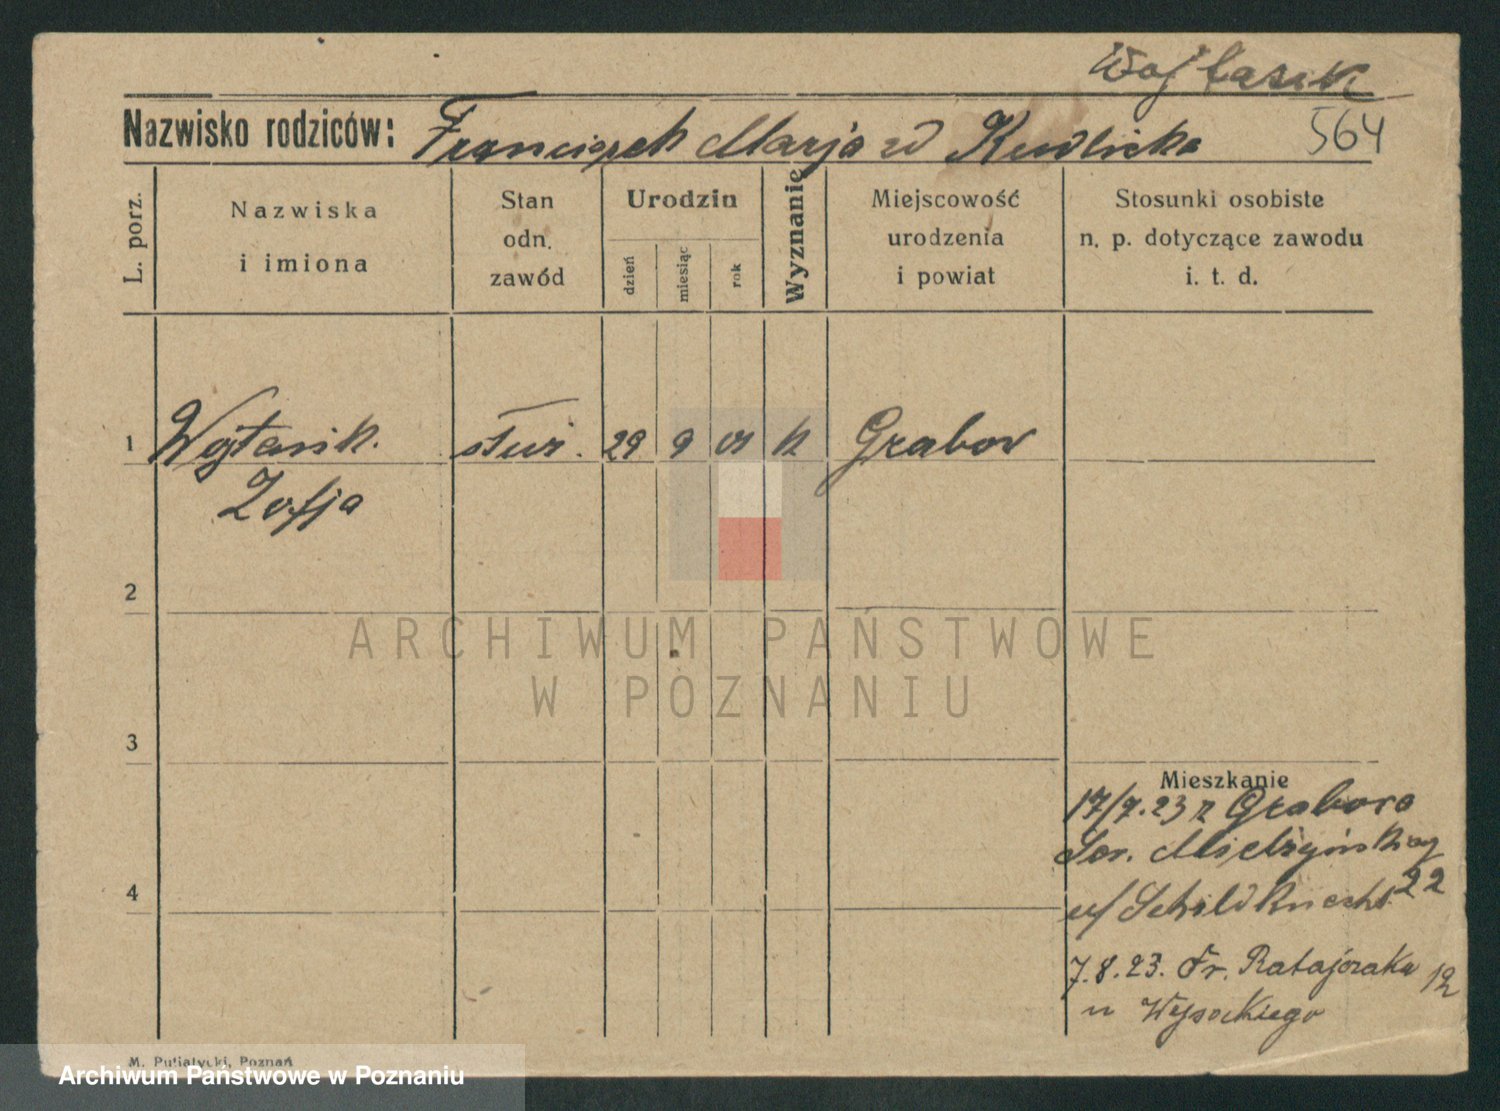 Wojtasik
Nazwisko rodziców: Franciszek Marja zd Kudlicka 564
L. porz.
Nazwiska
i imiona
Stan
odn.
zawód
Urodzin
dzień
miesiąc
rok
Wyznanie
Miejscowość
urodzenia
i powiat
Stosunki osobiste
n. p. dotyczące zawodu
i. t. d.
1 Wojtasik. służ. 29 9 01 k Grabow
Zofja
2
3
4
Mieszkanie
17/7.23 z Grabowa
Sew. Mielżyńskiego
22
u/ Schildknecht
7.8.23. Fr. Ratajczaka 12
u Wysockiego
M. Putiatycki, Poznań
ARCHIWUM PAŃSTWOWE
W POZNANIU
Archiwum Państwowe w Poznaniu